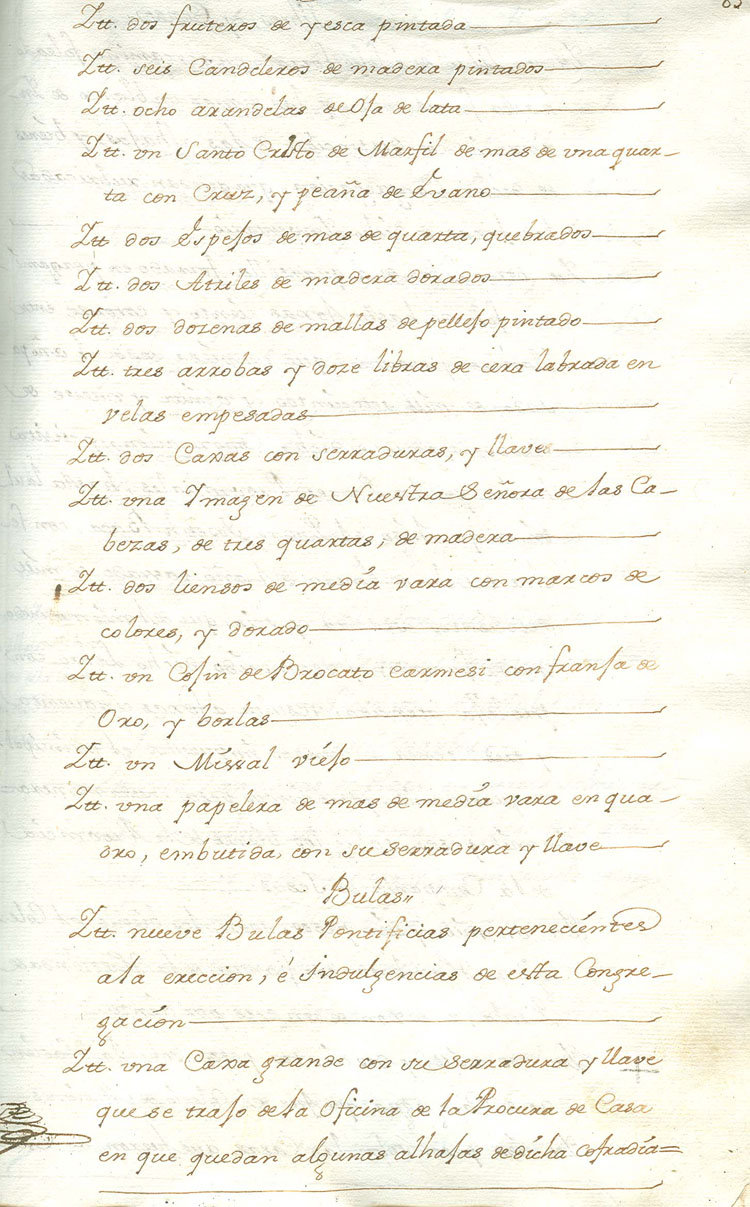 Itt. dos fruteros de yesca pintada
Itt. seis Candeleros de madera pintados
Itt. ocho arandelas de Oja de lata
Itt. vn Santo Cristo de Marfil de mas de vna quar-
ta con Cruz, y peaña de Evano
Itt. dos Espejos de mas de quarta, quebrados
Itt. dos Atriles de madera dorados
Itt. dos dozenas de mallas de pellejo pintado
Itt. tres arrobas y doze libras de cera labrada en
velas empesadas
Itt. dos Caxas con serraduras, y llave
Itt. vna Imagen de Nuestra Señora de las Ca-
bezas, de tres quartas, de madera
Itt. dos liensos de media vara con marcos de
colores, y dorado
Itt. vn Cojin de Brocato carmesi con franja de
Oro, y borlas
Itt. vn Missal viejo
Itt. vna papelera de mas de media vara en qua-
dro, embutida, con su serradura y llave
Bulas
Itt. nueve Bulas Pontificias pertenecientes
a la ereccion, é indulgencias de esta Congre-
gación
Itt. vna Caxa grande con su serradura y llave
que se trajo de la Oficina de la Procura de Casa
en que quedan algunas alhajas de dicha cofradia=